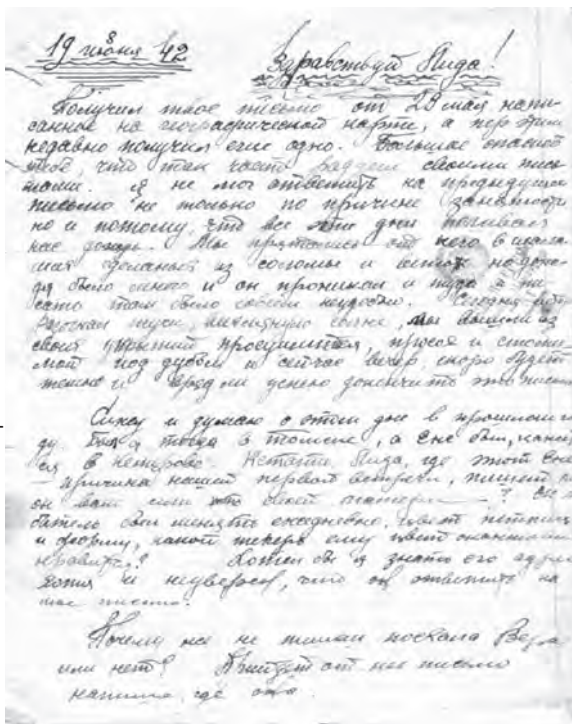 19 июня 42 Здравствуй Лида!
Получил твое письмо от 20 мая напи-
санное на географической карте, а перед этим
недавно получил еще одно. Большое спасибо
тебе, что так часто радуешь своими пись-
мами. Я не мог ответить на предыдущее
письмо не только по причине занятости
но и потому, что все эти дни поливал
нас дождь. Мы прятались от него в шала-
шах сделаных из соломы и веток но дож-
дя было много и он проникал и туда и пи-
сать там было совсем неудобно. Сегодня
тучи, солнце, мы вышли из
своих укрытий просушится, и
под дубом и сейчас вечер, скоро будет
темно и вряд ли успею докончить это письмо
Сижу и думаю о этом дне в прошлом го-
ду. Был я тогда в Томске, а Сне был, кажет
ся в Кемерово. Кстати Лида, где этот
причина нашей первой встречи, пишет ли
он вам или своей ? Он лю-
битель был менять ежедневно, цвет петлиц
и форму, какой теперь ему цвет
нравится? Хотел бы я знать его адрес
хотя и неуверен, что он ответит на
мое письмо.
Почему не поехала Вера
или нет? Придет от нее письмо
напиши, где она.